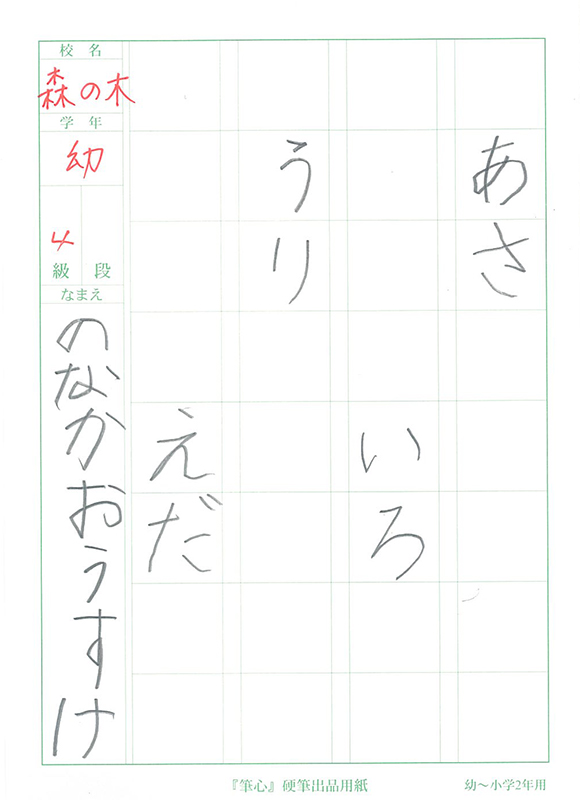 あさ
いろ
うり
えだ
校名
森の木
学年
幼
4
級 段
なまえ
のなかおうすけ
『筆心』硬筆出品用紙
幼～小学2年用